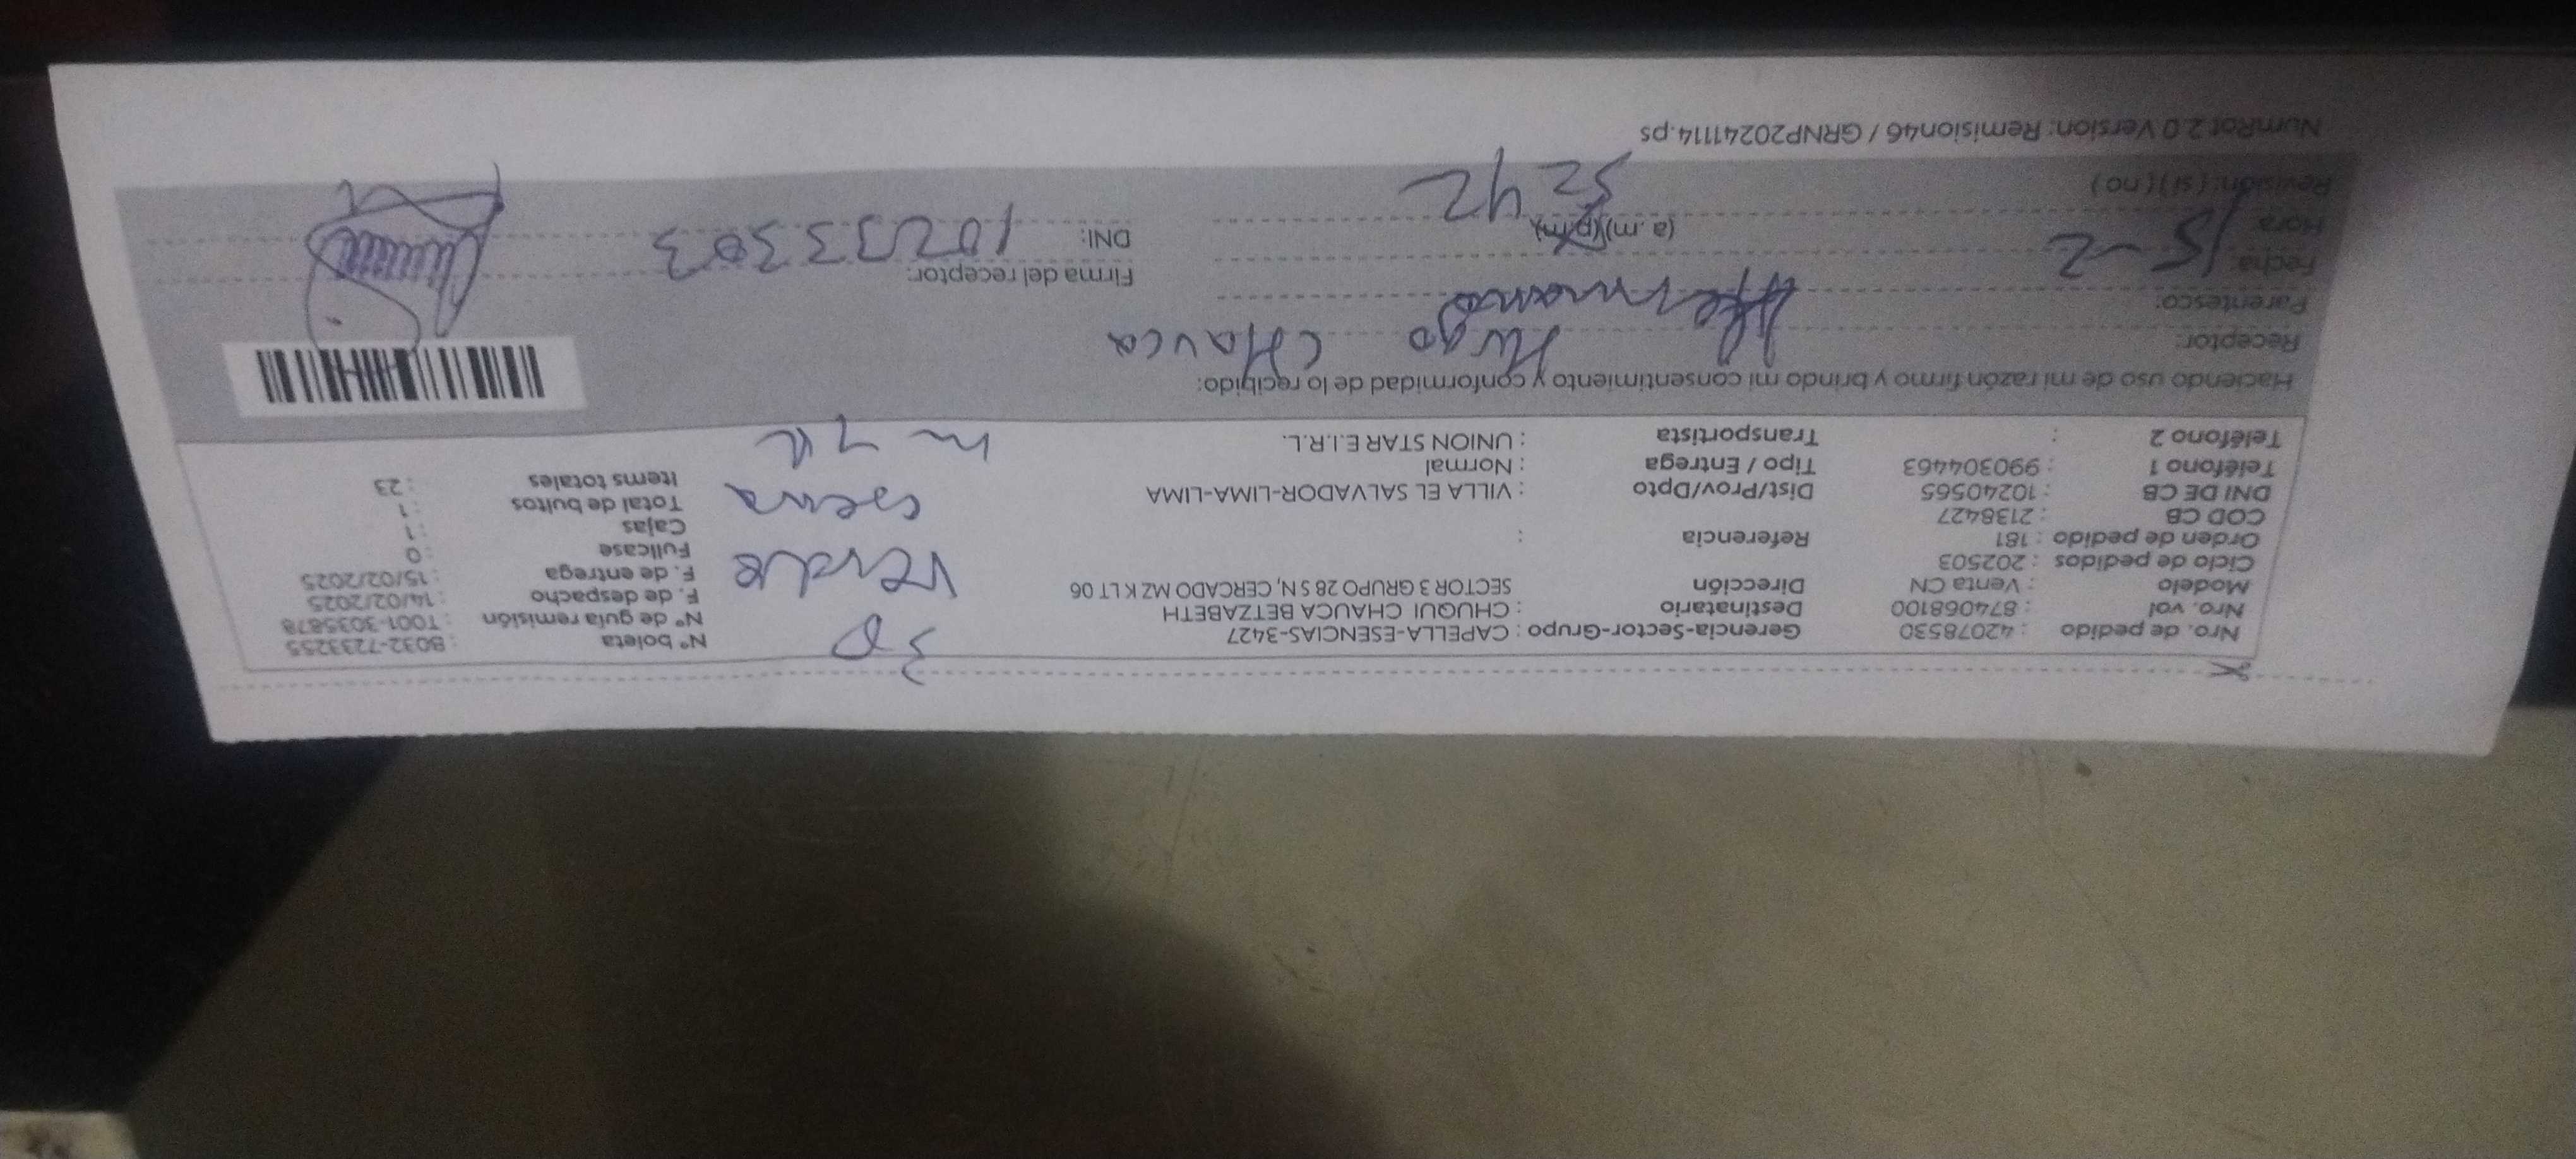 Nro. de pedido : 42078530 Gerencia-Sector-Grupo : CAPELLA-ESENCIAS-3427 Nº boleta : B032-7233255
Nro. vol : 874068100 Destinatario : CHUQUI CHAUCA BETZABETH Nº de guía remisión : T001-3035878
Modelo : Venta CN Dirección SECTOR 3 GRUPO 28 S N, CERCADO MZ K LT 06 F. de despacho : 14/02/2025
Ciclo de pedidos : 202503 F. de entrega : 15/02/2025
Orden de pedido : 181 Referencia : Fullcase : 0
COD CB : 2138427 Cajas : 1
DNI DE CB : 10240565 Dist/Prov/Dpto : VILLA EL SALVADOR-LIMA-LIMA Total de bultos : 1
Teléfono 1 : 990304463 Tipo / Entrega : Normal Items totales : 23
Teléfono 2 : Transportista : UNION STAR E.I.R.L.
3P
Verde
Haciendo uso de mi razón firmo y brindo mi consentimiento y conformidad de lo recibido:
Receptor: Hugo CHauca
Parentesco: Hermano Firma del receptor:
Fecha: 15-2
Hora (a.m)(p.m) DNI: 10233303
Revisión: (si)(no)
NumRot 2.0 Version: Remision46 / GRNP20241114.ps